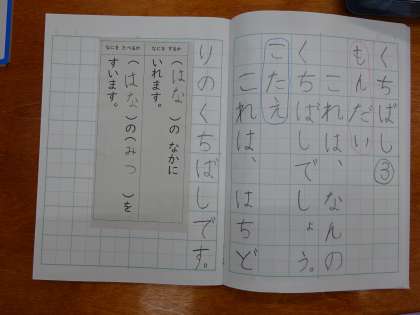 くちばし③
もんだい
これは、なんの
くちばしでしょう。
こたえ
これは、はちど
りのくちばしです。
なにを するか
(はな)の なかに
いれます。
なにを たべるか
(はな)の(みつ)を
すいます。